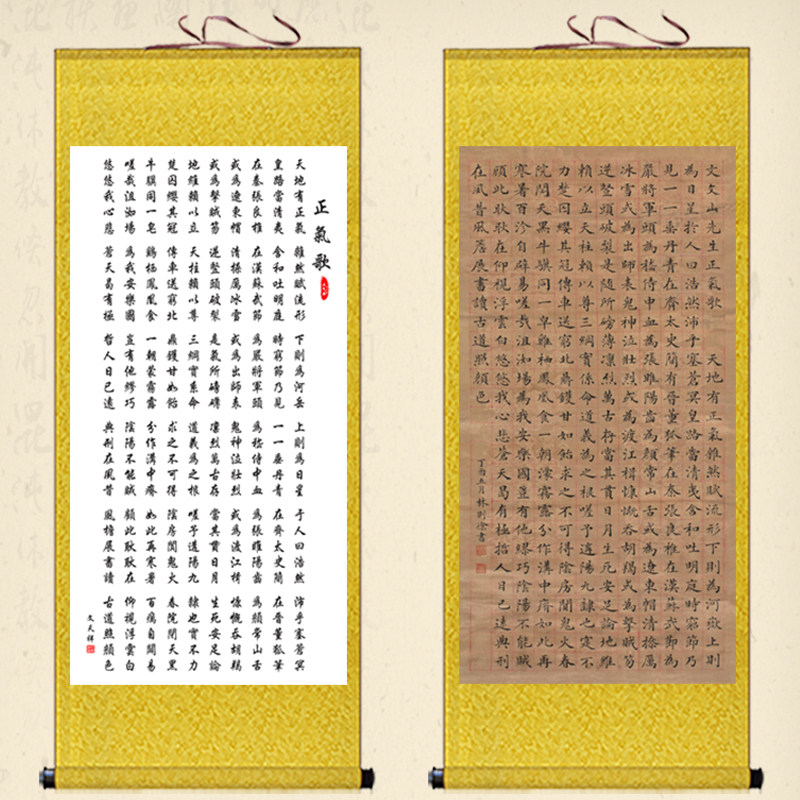 正氣歌
天地有正氣 雜然賦流形 下則為河岳 上則為日星 于人曰浩然 沛乎塞蒼冥
皇路當清夷 含和吐明庭 時窮節乃見 一一垂丹青 在齊太史簡 在晉董狐筆
在秦張良椎 在漢蘇武節 為嚴將軍頭 為嵇侍中血 為張睢陽齒 為顏常山舌
或為遼東帽 清操厲冰雪 或為出師表 鬼神泣壯烈 或為渡江楫 慷慨吞胡羯
或為擊賊笏 逆豎頭破裂 是氣所磅礴 凜烈萬古存 當其貫日月 生死安足論
地維賴以立 天柱賴以尊 三綱實系命 道義為之根 嗟予遘陽九 隸也實不力
楚囚纓其冠 傳車送窮北 鼎鑊甘如飴 求之不可得 陰房闃鬼火 春院閉天黑
牛驥同一皂 鷄栖鳳凰食 一朝蒙霧露 分作溝中瘠 如此再寒暑 百癘自辟易
嗟哉沮洳場 為我安樂國 豈有他繆巧 陰陽不能賊 顧此耿耿在 仰視浮雲白
悠悠我心悲 蒼天曷有極 哲人日已遠 典刑在夙昔 風檐展書讀 古道照顏色
文天祥
文文山先生正氣歌 天地有正氣雜然賦流形下則為河嶽上則
為日星於人曰浩然沛乎塞蒼冥皇路當清夷含和吐明庭時窮節乃
見一一垂丹青在齊太史簡在晉董狐筆在秦張良椎在漢蘇武節為
嚴將軍頭為嵇侍中血為張睢陽齒為顏常山舌或為遼東帽清操厲
冰雪或為出師表鬼神泣壯烈或為渡江楫慷慨吞胡羯或為擊賊笏
逆豎頭破裂是氣所磅礴凜烈萬古存當其貫日月生死安足論地維
賴以立天柱賴以尊三綱實係命道義為之根嗟予遘陽九隸也實不
力楚囚纓其冠傳車送窮北鼎鑊甘如飴求之不可得陰房闃鬼火春
院閟天黑牛驥同一皁雞栖鳳凰食一朝濛霧露分作溝中瘠如此再
寒暑百沴自辟易嗟哉沮洳場為我安樂國豈有他繆巧陰陽不能賊
顧此耿耿在仰視浮雲白悠悠我心悲蒼天曷有極哲人日已遠典刑
在夙昔風簷展書讀古道照顏色
丁酉五月林則徐書